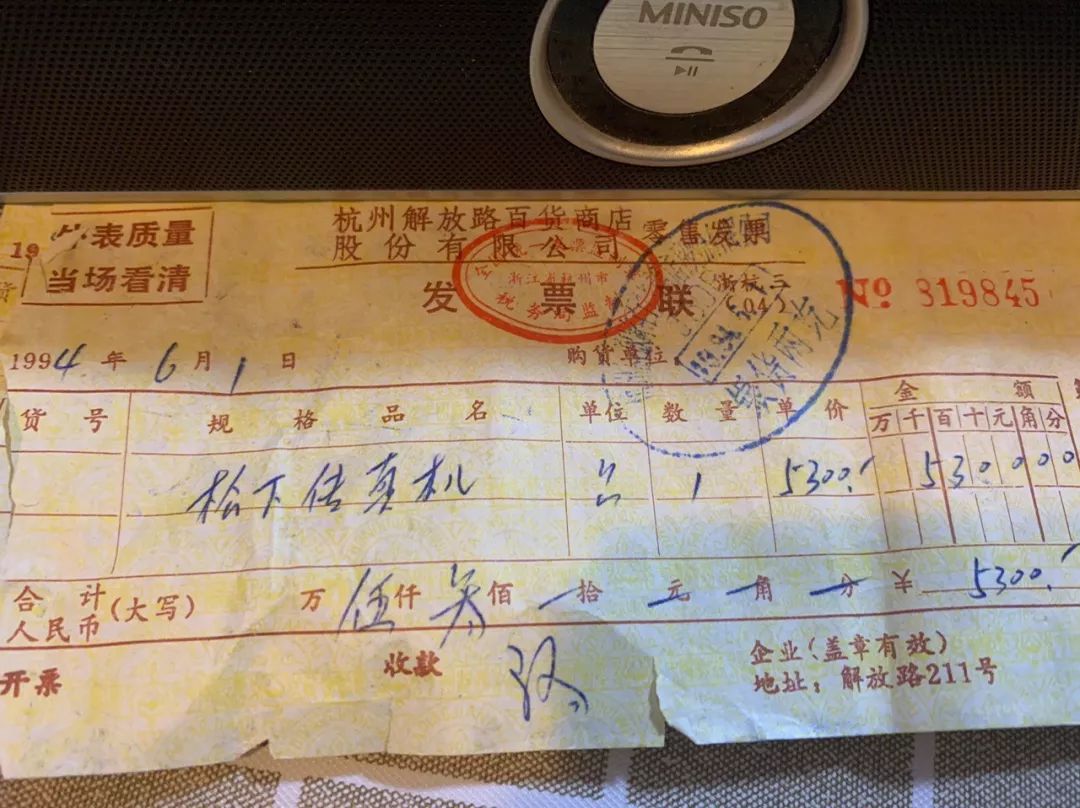 MINISO
外表质量
当场看清
19
杭州解放路百货商店
股份有限公司
零售发票
发票联
浙江省杭州市
税务局监制
浙杭三
No 819845
1994年6月1日
购货单位
货号 规格品名 单位 数量 单价 金额
万千百十元角分
松下传真机 台 1 5300.- 530000
合计
人民币
(大写) 万伍仟叁佰一拾一元一角一分 5300.-
开票 收款
企业(盖章有效)
地址:解放路211号